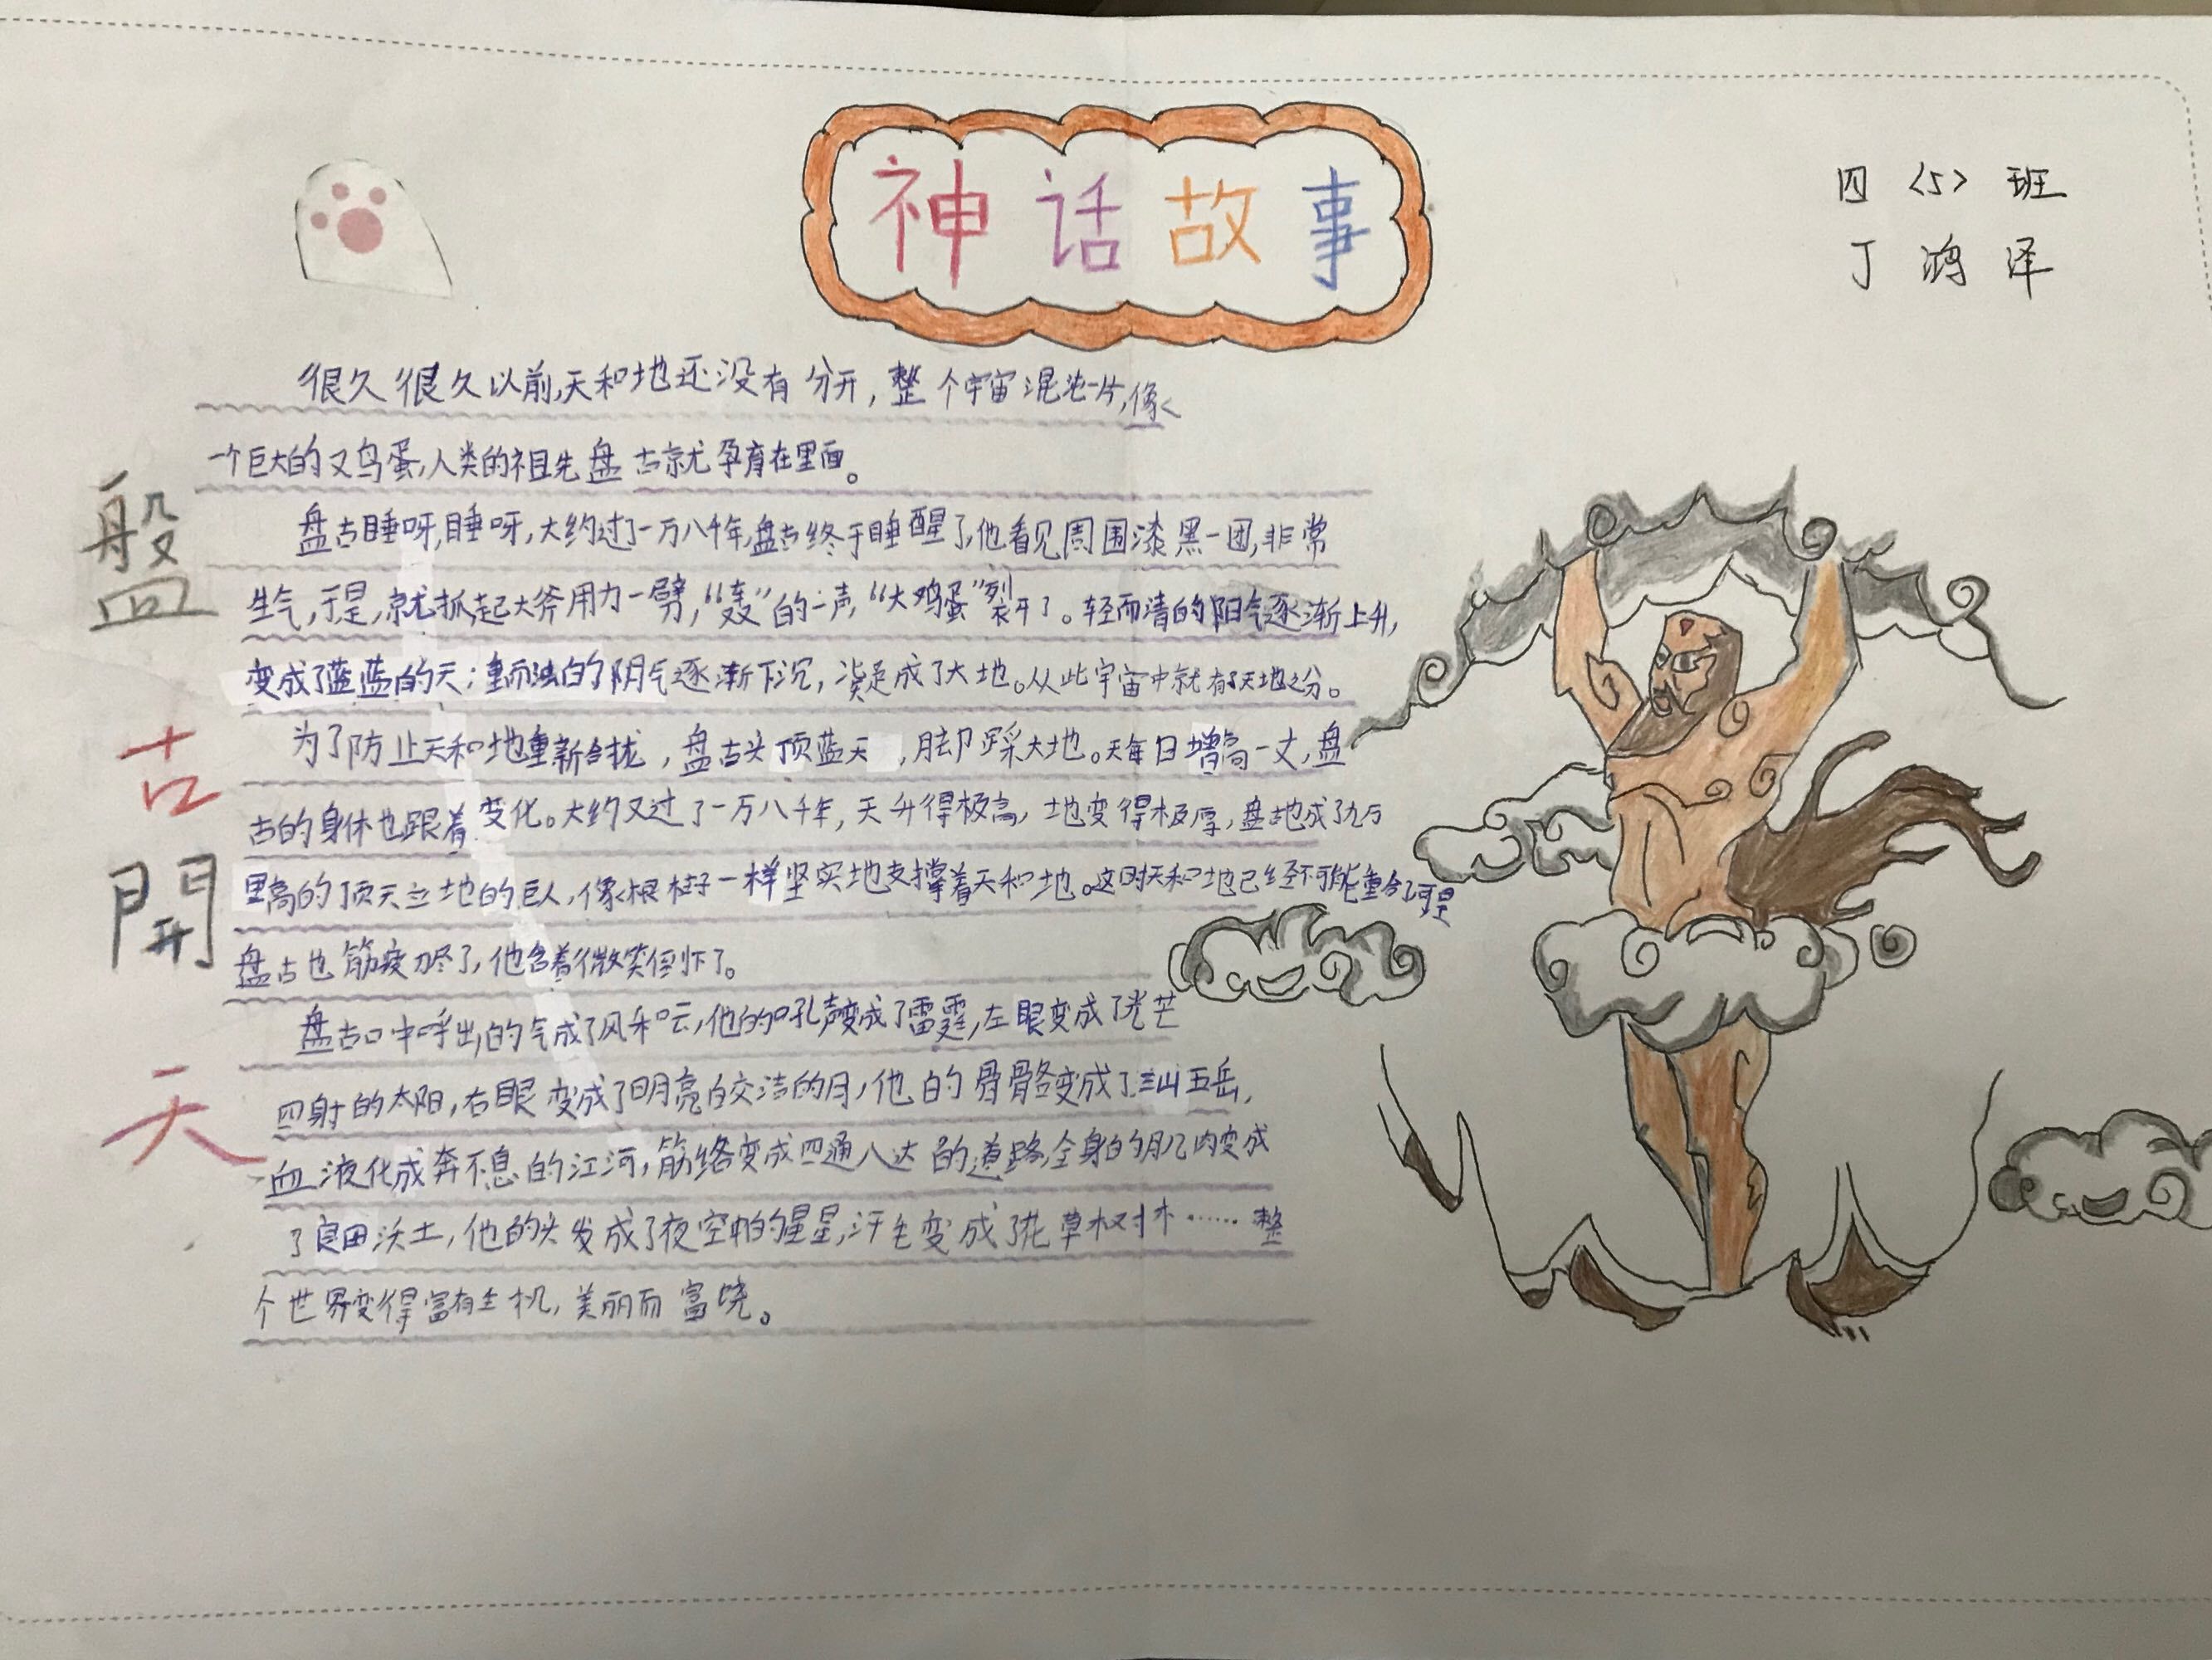 神话故事
四〈5〉班
丁鸿泽
盤古開天
很久很久以前,天和地还没有分开,整个宇宙混沌一片,像
一个巨大的又鸟蛋,人类的祖先盘古就孕育在里面。
盘古睡呀,睡呀,大约过了一万八千年,盘古终于睡醒了,他看见周围漆黑一团,非常
生气,于是,就抓起大斧用力一劈,“轰”的一声,“大鸡蛋”裂开了。轻而清的阳气逐渐上升,
变成了蓝蓝的天;重而浊的阴气逐渐下沉,凝成了大地。从此宇宙中就有了天地之分。
为了防止天和地重新合拢,盘古头顶蓝天,脚踩大地。天每日增高一丈,盘
古的身体也跟着变化。大约又过了一万八千年,天升得极高,地变得极厚,盘地成了九万
里高的顶天立地的巨人,像根柱子一样坚实地支撑着天和地。这时天和地已经不可能重合了,可是
盘古也筋疲力尽了,他含着微笑倒下了。
盘古口中呼出的气成了风和云,他的吼声变成了雷霆,左眼变成了光芒
四射的太阳,右眼变成了明亮皎洁的月,他的骨骼变成了三山五岳,
血液化成奔不息的江河,筋络变成四通八达的道路,全身的肌肉变成
了良田沃土,他的头发成了夜空的星星,汗毛变成了花草树木……整
个世界变得富有生机,美丽而富饶。